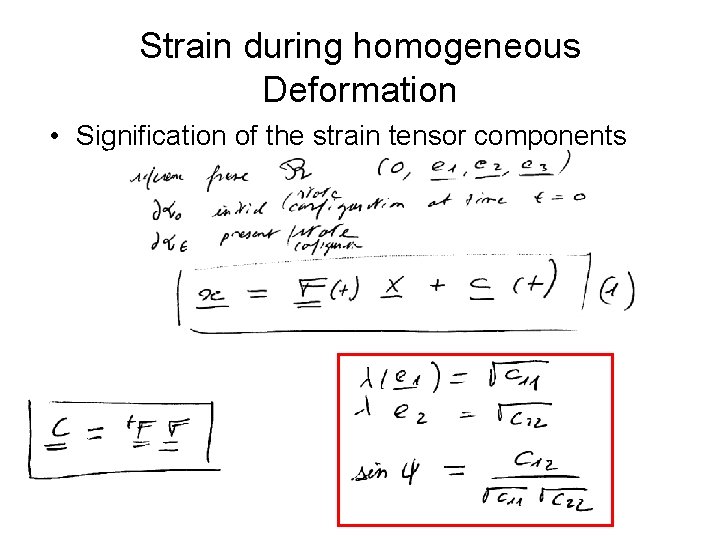 Strain during homogeneous
Deformation
• Signification of the strain tensor components
frame ℛ (0, e1, e2, e3)
𝒦0 initial (state configuration at time t = 0
𝒦t present (state configuration
x = F(t) X + c(t) (1)
λ(e1) = √C11
λ e2 = √C22
C = ᵗF F
sin ψ = C12 / √C11 √C22